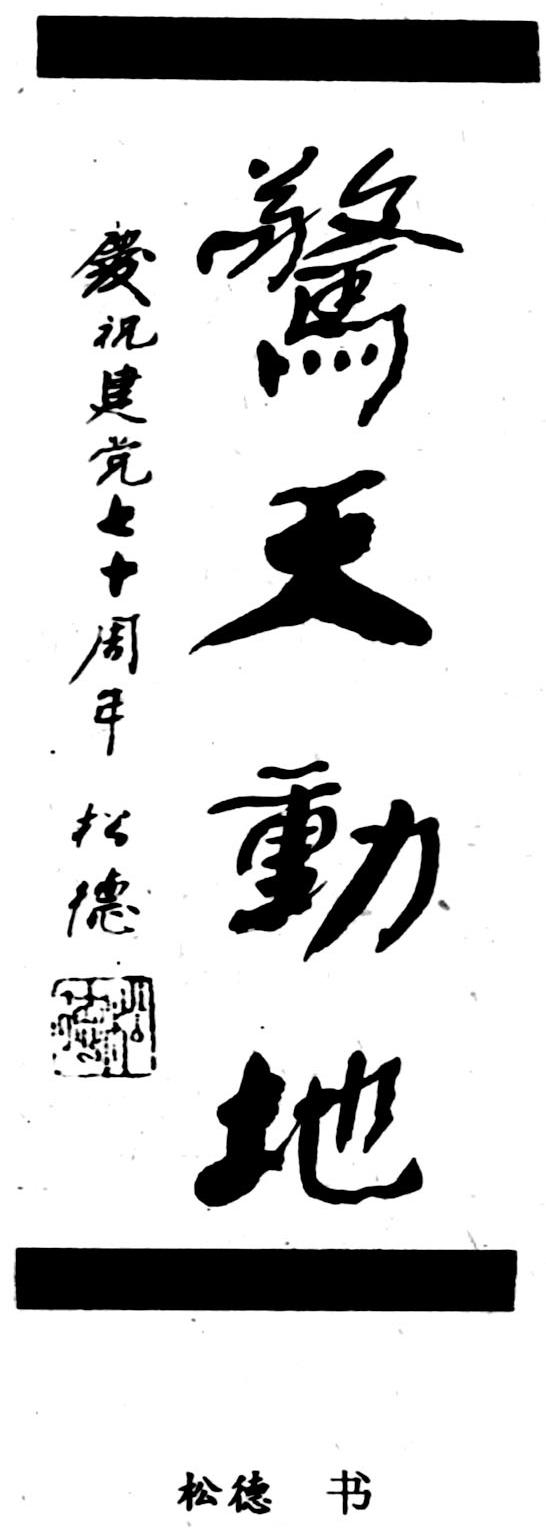 驚天動地
慶祝建党七十周年 松德
松德 书